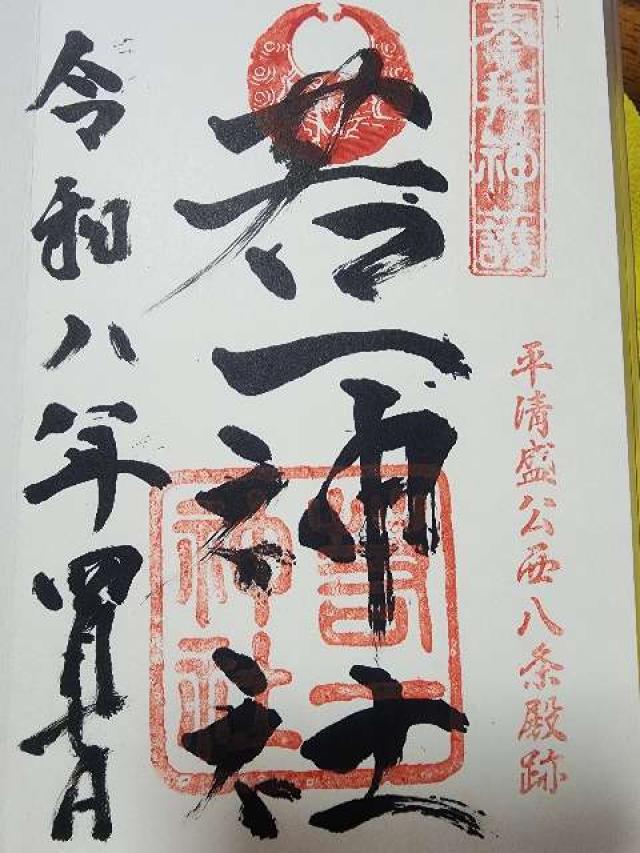 奉拝神護
平清盛公西八条殿跡
若一神社
若一神社
令和八年四月七日